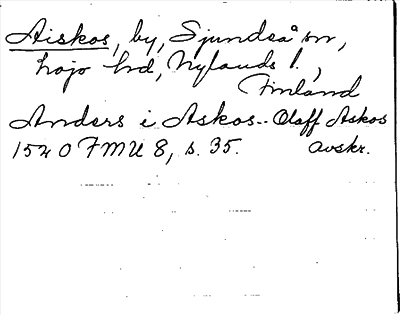 Aiskos, by, Sjundså sn,
Lojo hd, Nylands l.,
Finland
Anders i Askos -- Olaff Askos
1540 FMU 8, s. 35. avskr.